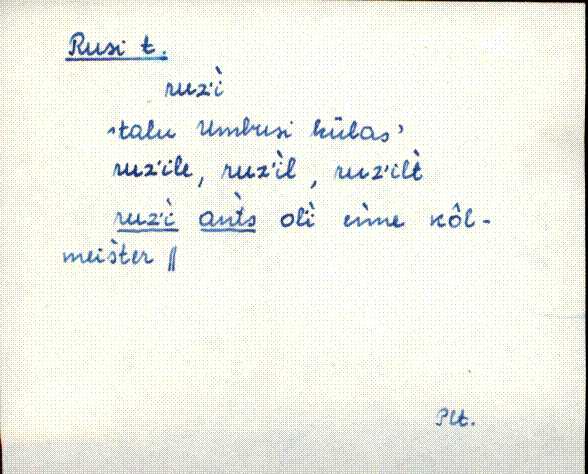 Rusi t.
ruz'ì
‘talu Umbusi külas’
ruz'ile, ruz'ìl, ruz'ilt̀
ruz'ì ańt̀s olì eńne kôl-
meis̀ter ||
Plt.